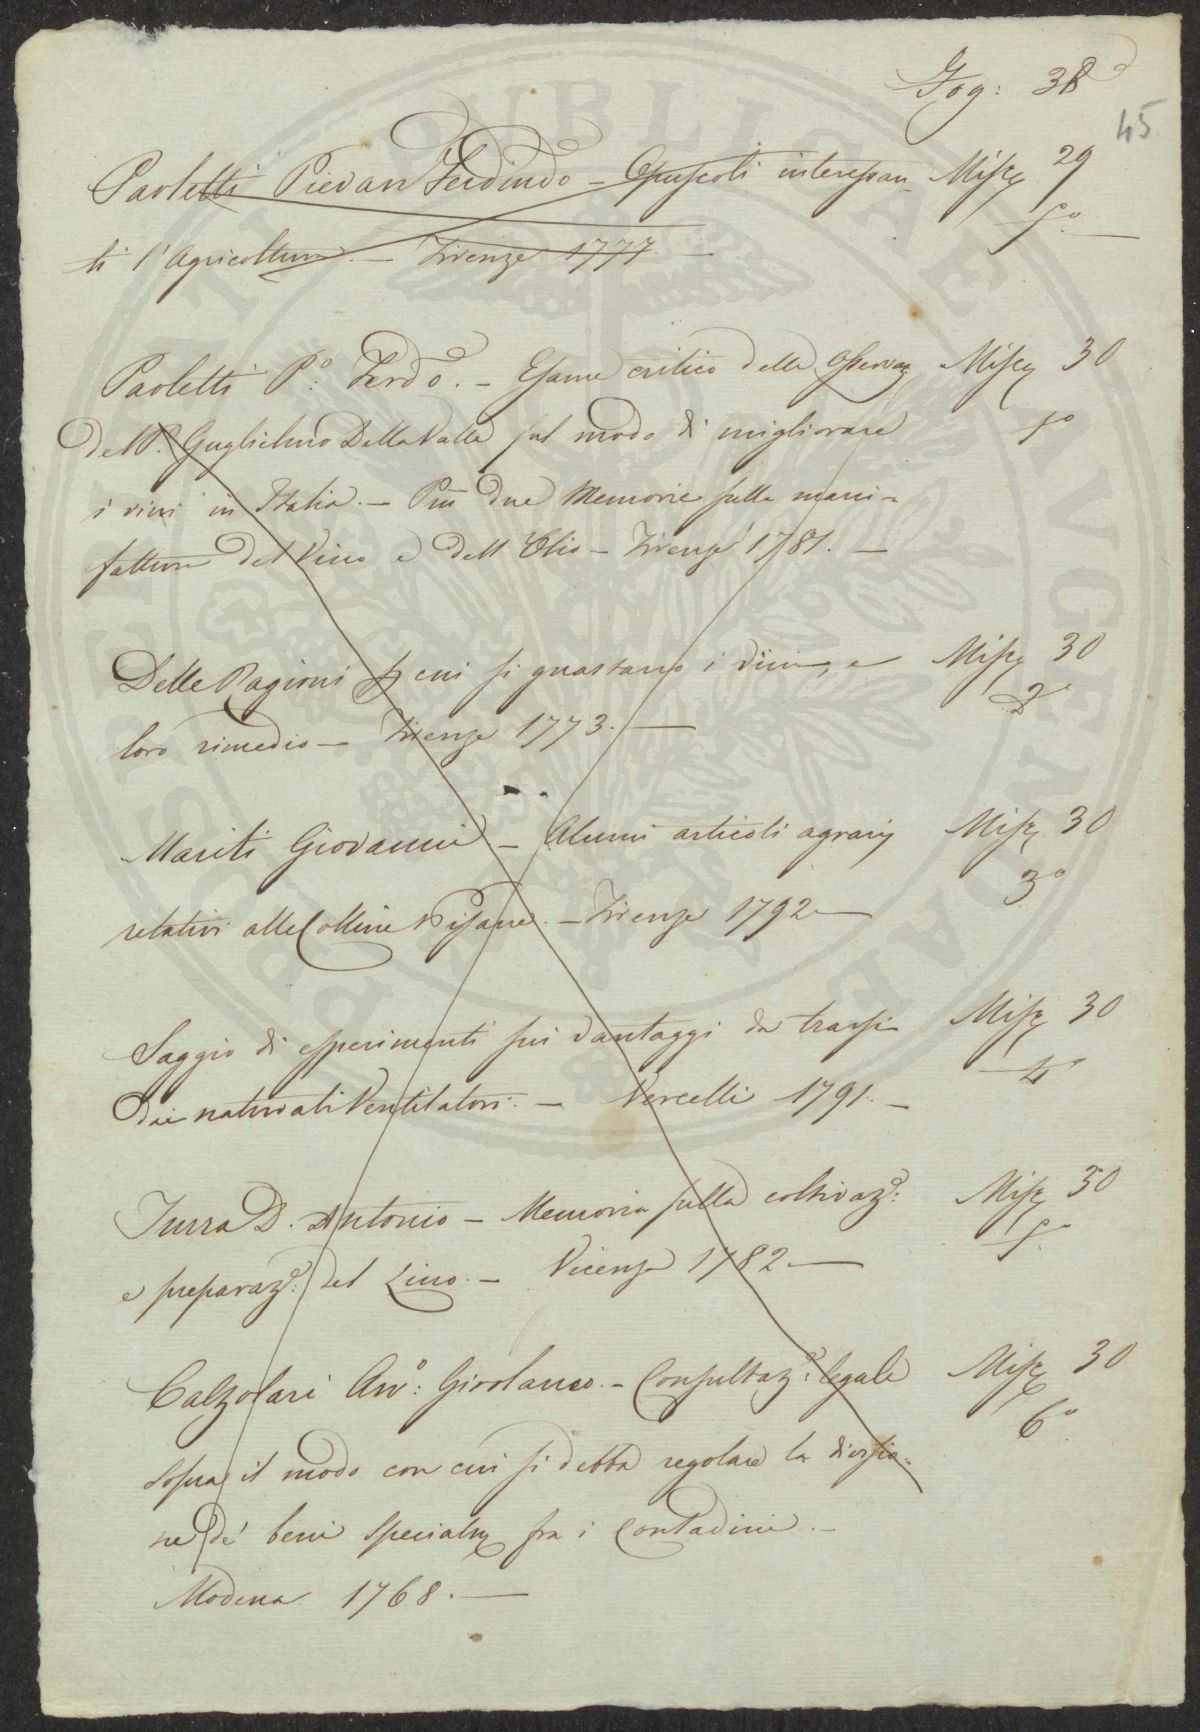 Fog: 38
45
Paoletti Pievan Ferdindo – Opuscoli interessan Misc 29
ti l'Agricoltura. – Firenze 1777. – 5°
Paoletti P.° Ferd°. – Esame critico delle Osservaz Misc 30
del P. Guglielmo Della Valle sul modo di migliorare 1°
i vini in Italia. – Più due Memorie sulla mani=
fattura del Vino e dell'Olio – Firenze 1781. –
Delle Ragioni p cui si guastano i Vini, e Misc 30
loro rimedio – Firenze 1773. – 2°
Mariti Giovanni – Alcuni articoli agrarj Misc 30
relativi alle Colline Pisane. – Firenze 1792 – 3°
Saggio di esperimenti sui vantaggi da trarsi Misc 30
dai naturali Ventilatori. – Vercelli 1791. – 4°
Turra D. Antonio – Memoria sulla coltivaz.e: Misc 30
e preparaz.e: del Lino. – Vicenza 1782. – 5°
Calzolari Avv.°: Girolamo. – Consultaz.e: legale Misc 30
sopra il modo con cui si debba regolare la divisio= 6°
ne de' beni fra i Contadini. –
Modena 1768. –
PUBLICAE AUGENDAE PROSPERITATI